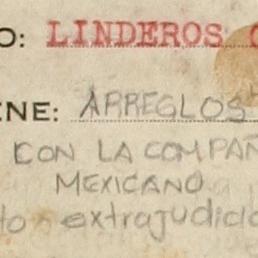 O: LINDEROS
ENE: ARREGLOS
CON LA COMPAÑ
MEXICANO
to extrajudicia